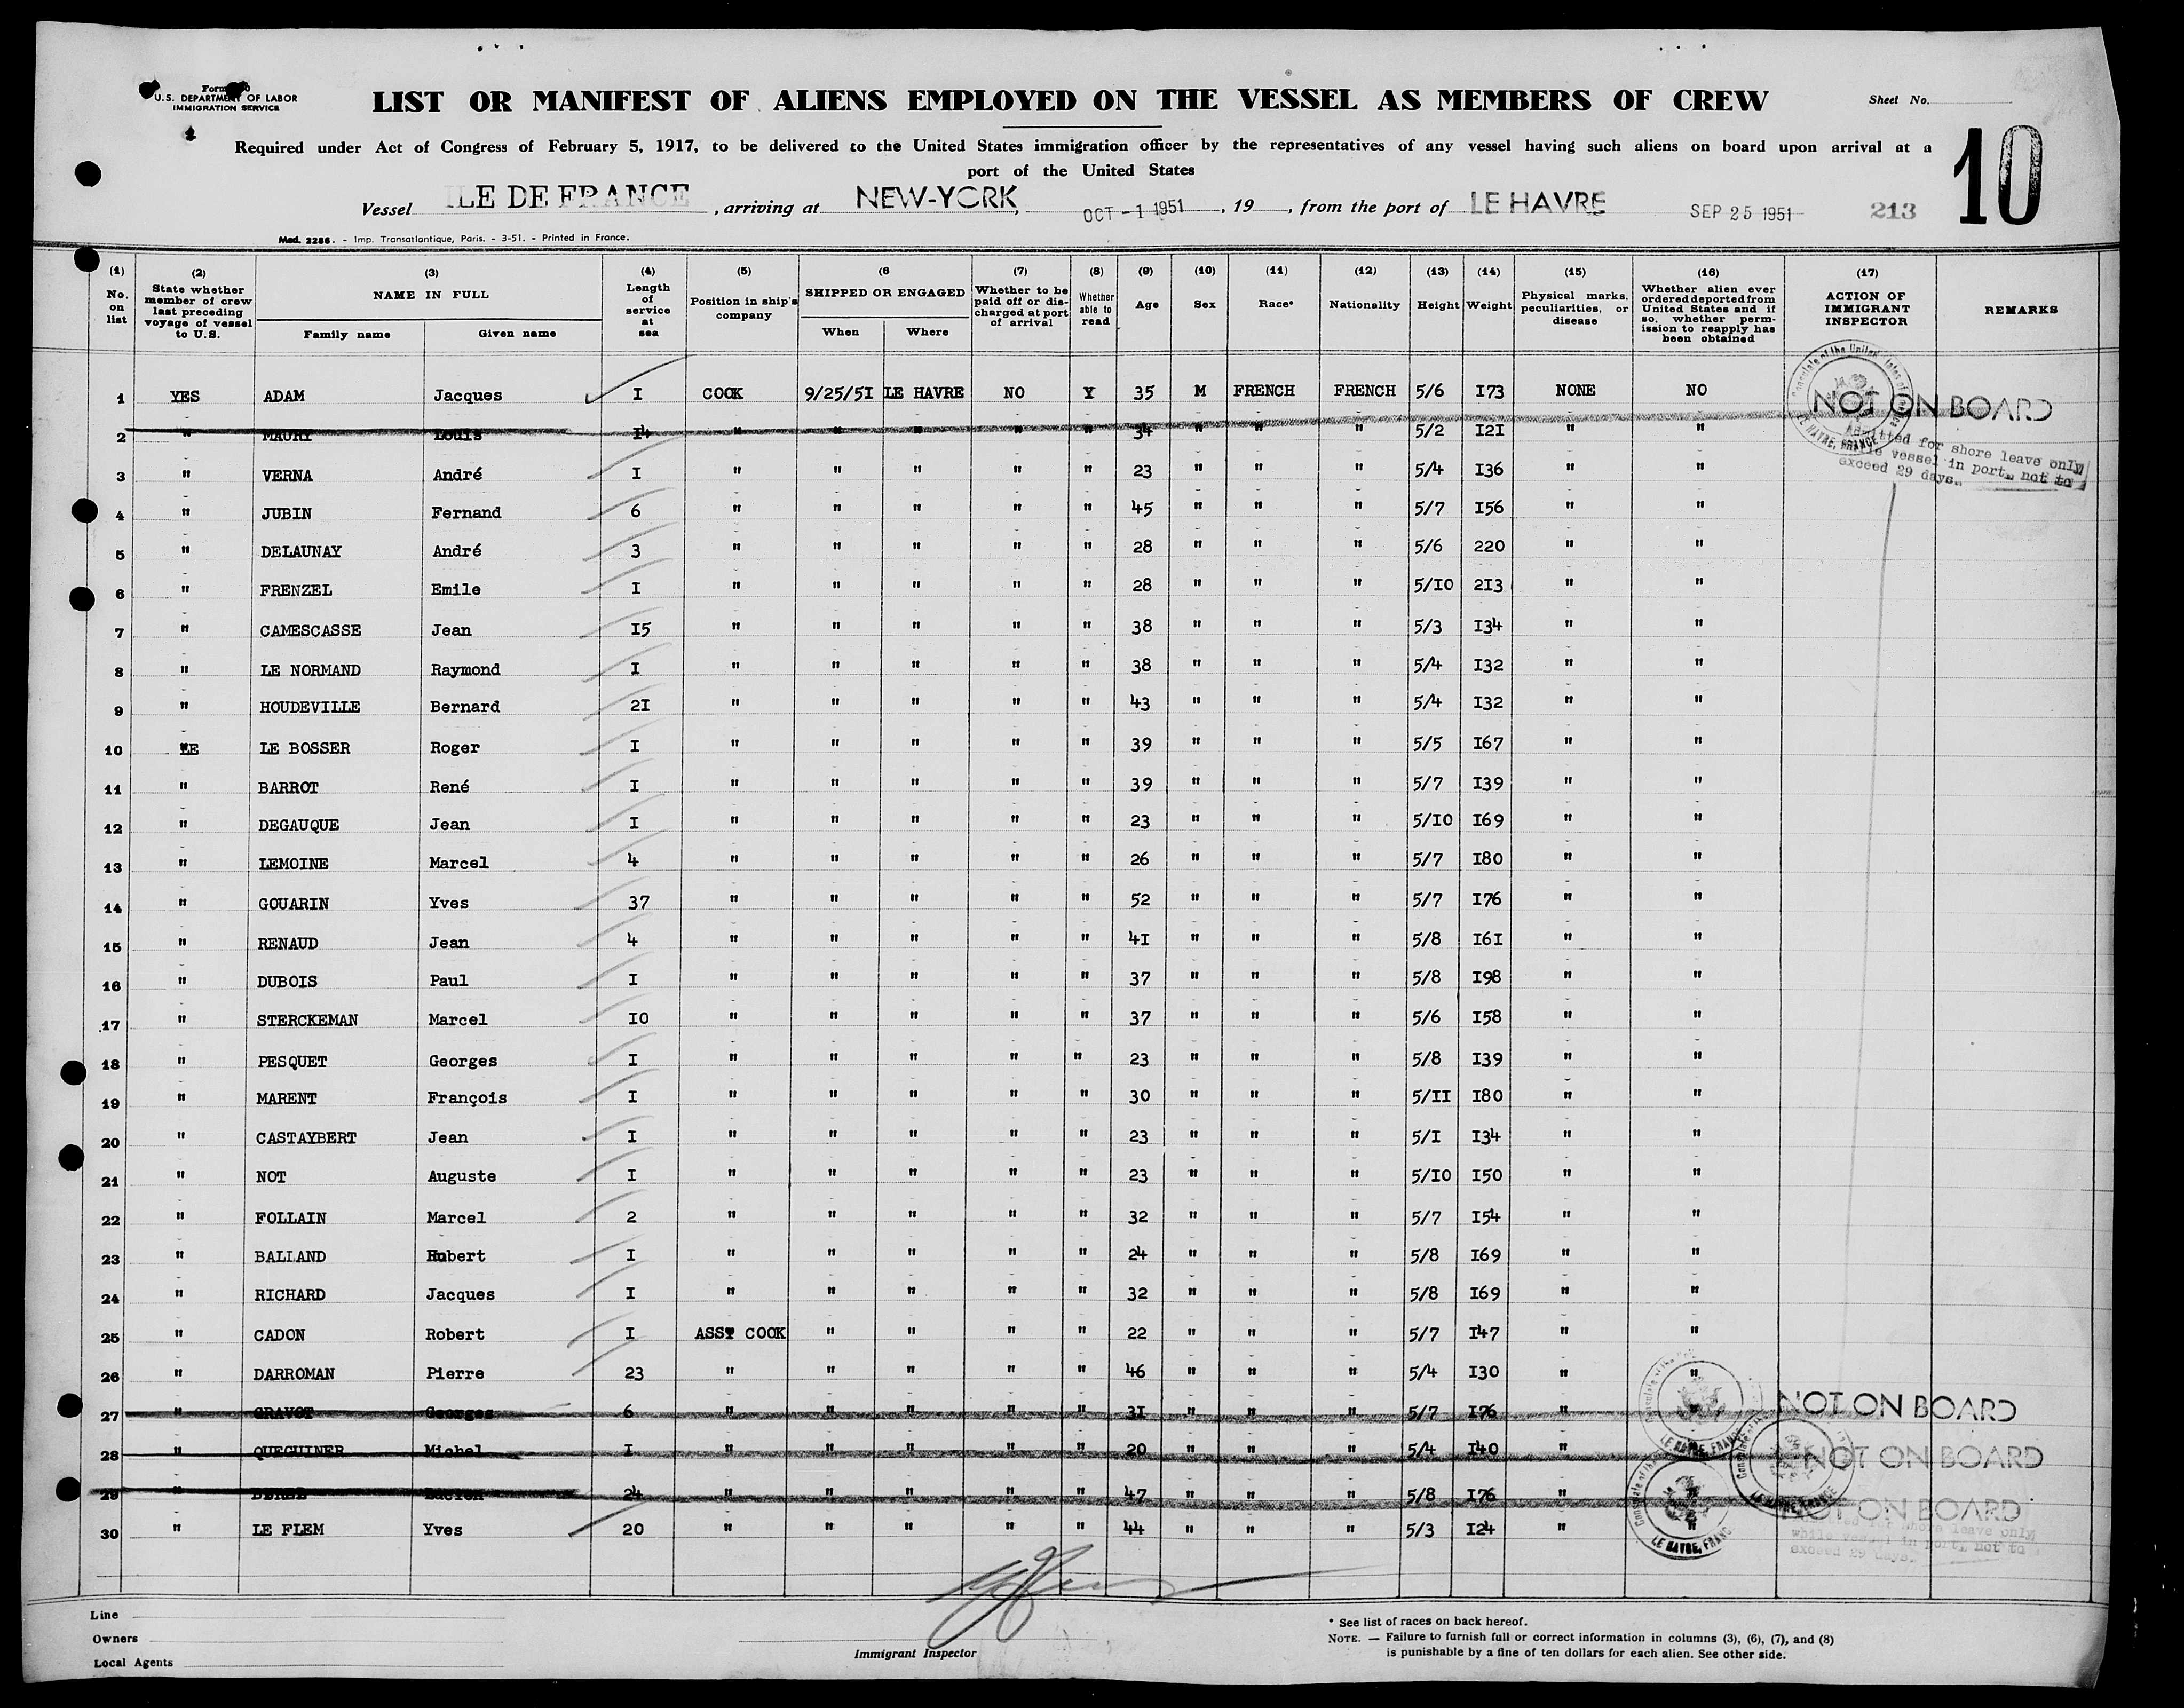 Form
U.S. DEPARTMENT OF LABOR
IMMIGRATION SERVICE
LIST OR MANIFEST OF ALIENS EMPLOYED ON THE VESSEL AS MEMBERS OF CREW
Sheet No.
10
Required under Act of Congress of February 5, 1917, to be delivered to the United States immigration officer by the representatives of any vessel having such aliens on board upon arrival at a
port of the United States
Vessel ILE DE FRANCE, arriving at NEW-YORK, OCT -1 1951, 19, from the port of LE HAVRE SEP 25 1951 213
Mod. 2286. - Imp. Transatlantique, Paris. - 3-51. - Printed in France.
(1) No. on list (2) State whether member of crew last preceding voyage of vessel to U.S. (3) NAME IN FULL Family name Given name (4) Length of service at sea (5) Position in ship's company (6 SHIPPED OR ENGAGED When Where (7) Whether to be paid off or discharged at port of arrival (8) Whether able to read (9) Age (10) Sex (11) Race* (12) Nationality (13) Height (14) Weight (15) Physical marks, peculiarities, or disease (16) Whether alien ever ordered deported from United States and if so, whether permission to reapply has been obtained (17) ACTION OF IMMIGRANT INSPECTOR REMARKS
1 YES ADAM Jacques I COOK 9/25/5I LE HAVRE NO Y 35 M FRENCH FRENCH 5/6 I73 NONE NO
NOT ON BOARD
2 " MAURY Louis I4 " " " " " 34 " " " 5/2 I2I " "
Admitted for shore leave only
while vessel in port, not to
exceed 29 days.
3 " VERNA André I " " " " " 23 " " " 5/4 I36 " "
4 " JUBIN Fernand 6 " " " " " 45 " " " 5/7 I56 " "
5 " DELAUNAY André 3 " " " " " 28 " " " 5/6 220 " "
6 " FRENZEL Emile I " " " " " 28 " " " 5/I0 2I3 " "
7 " CAMESCASSE Jean I5 " " " " " 38 " " " 5/3 I34 " "
8 " LE NORMAND Raymond I " " " " " 38 " " " 5/4 I32 " "
9 " HOUDEVILLE Bernard 2I " " " " " 43 " " " 5/4 I32 " "
10 LE BOSSER Roger I " " " " " 39 " " " 5/5 I67 " "
11 " BARROT René I " " " " " 39 " " " 5/7 I39 " "
12 " DEGAUQUE Jean I " " " " " 23 " " " 5/I0 I69 " "
13 " LEMOINE Marcel 4 " " " " " 26 " " " 5/7 I80 " "
14 " GOUARIN Yves 37 " " " " " 52 " " " 5/7 I76 " "
15 " RENAUD Jean 4 " " " " " 4I " " " 5/8 I6I " "
16 " DUBOIS Paul I " " " " " 37 " " " 5/8 I98 " "
17 " STERCKEMAN Marcel I0 " " " " " 37 " " " 5/6 I58 " "
18 " PESQUET Georges I " " " " " 23 " " " 5/8 I39 " "
19 " MARENT François I " " " " " 30 " " " 5/II I80 " "
20 " CASTAYBERT Jean I " " " " " 23 " " " 5/I I34 " "
21 " NOT Auguste I " " " " " 23 " " " 5/I0 I50 " "
22 " FOLLAIN Marcel 2 " " " " " 32 " " " 5/7 I54 " "
23 " BALLAND Hubert I " " " " " 24 " " " 5/8 I69 " "
24 " RICHARD Jacques I " " " " " 32 " " " 5/8 I69 " "
25 " CADON Robert I ASST COOK " " " " 22 " " " 5/7 I47 " "
26 " DARROMAN Pierre 23 " " " " " 46 " " " 5/4 I30 " "
27 " GRAVOT Georges 6 " " " " " 3I " " " 5/7 I76 " " NOT ON BOARD
28 " QUEGUINER Michel I " " " " " 20 " " " 5/4 I40 " " NOT ON BOARD
29 " Lucien 24 " " " " " 47 " " " 5/8 I76 " " NOT ON BOARD
30 " LE FLEM Yves 20 " " " " " 44 " " " 5/3 I24 " "
for shore leave only
while vessel in port, not to
exceed 29 days.
LE HAVRE, FRANCE
Line
Owners
Local Agents
Immigrant Inspector
* See list of races on back hereof.
NOTE. — Failure to furnish full or correct information in columns (3), (6), (7), and (8)
is punishable by a fine of ten dollars for each alien. See other side.